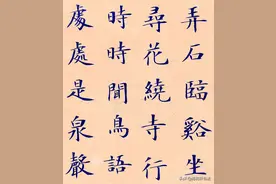 弄石臨谿坐
尋花繞寺行
時時聞鳥語
處處是泉聲